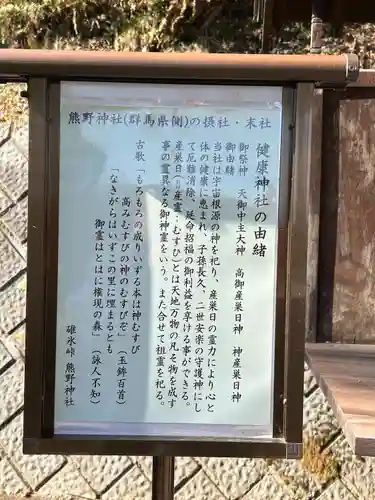 熊野神社(群馬県側)の摂社・末社
健康神社の由緒
御祭神 天御中主大神 高御産巣日神 神産巣日神
御由緒
当社は宇宙根源の神を祀り、産巣日の霊力により心と
体の健康に恵まれ、子孫長久、二世安楽の守護神にし
て厄難消除、延命招福の御利益を享ける事ができる。
産巣日(産霊:むすひ)とは天地万物の凡そ物を成す
事の霊異なる御神霊をいう。また合せて祖霊を祀る。
古歌「もろもろの成りいずる本は神むすび
高みむすびの神のむすびぞ」(玉鉾百首)
「なきがらはいずこの里に埋まるとも
御霊はとはに権現の森」(詠人不知)
碓氷峠 熊野神社